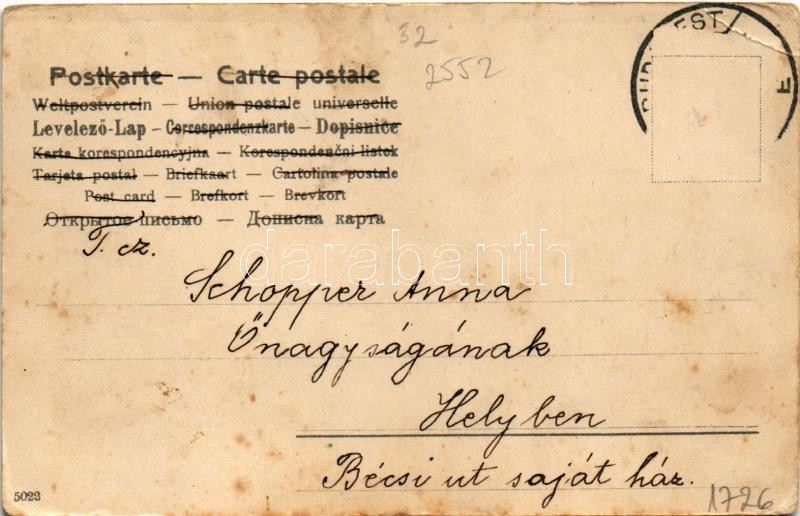 32
2552
BUDAPEST
Postkarte — Carte postale
Weltpostverein — Union postale universelle
Levelező-Lap – Correspondenzkarte – Dopisnice
Karta korespondencyjna — Korespondenční lístek
Tarjeta postal — Briefkaart — Cartolina postale
Post card — Brefkort — Brevkort
Открытое письмо — Дописна карта
T. cz.
Schopper Anna
Őnagyságának
Helyben
Bécsi ut saját ház.
5023
1726
darabanth